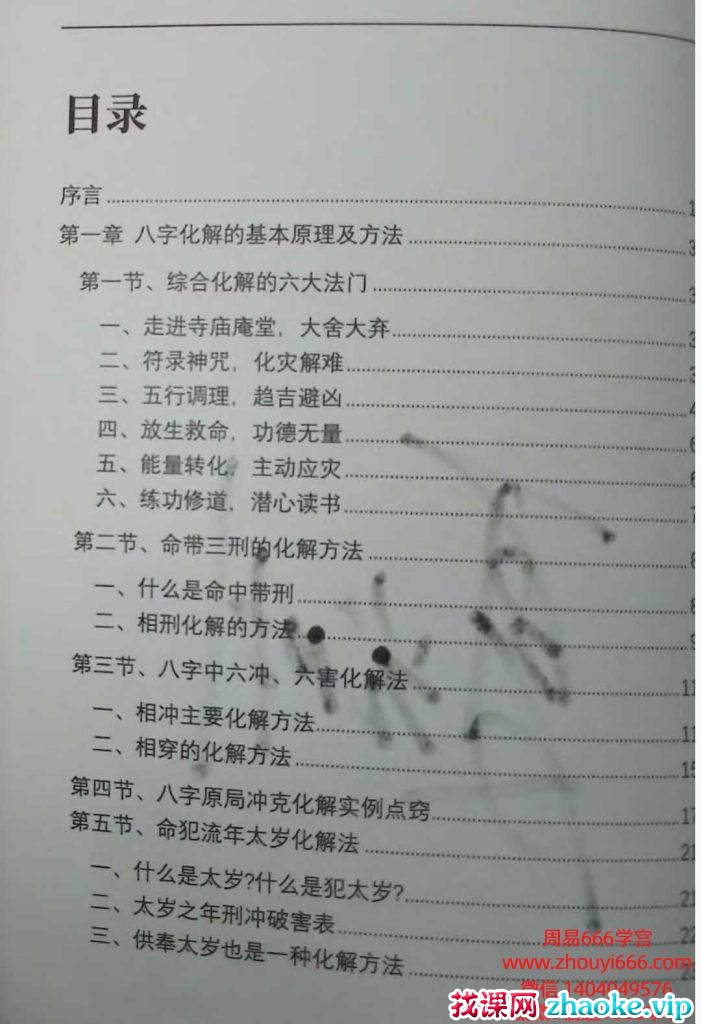 目录
序言 1
第一章 八字化解的基本原理及方法 3
第一节、综合化解的六大法门 3
一、走进寺庙庵堂，大舍大弃 3
二、符录神咒，化灾解难 3
三、五行调理，趋吉避凶 4
四、放生救命，功德无量 6
五、能量转化，主动应灾 6
六、练功修道，潜心读书 7
第二节、命带三刑的化解方法 8
一、什么是命中带刑 8
二、相刑化解的方法 9
第三节、八字中六冲、六害化解法 11
一、相冲主要化解方法 11
二、相穿的化解方法 15
第四节、八字原局冲克化解实例点窍 17
第五节、命犯流年太岁化解法 21
一、什么是太岁?什么是犯太岁? 21
二、太岁之年刑冲破害表 22
三、供奉太岁也是一种化解方法
周易666学宫
www.zhouyi666.com
微信 1404049576
找课网zhaoke.vip